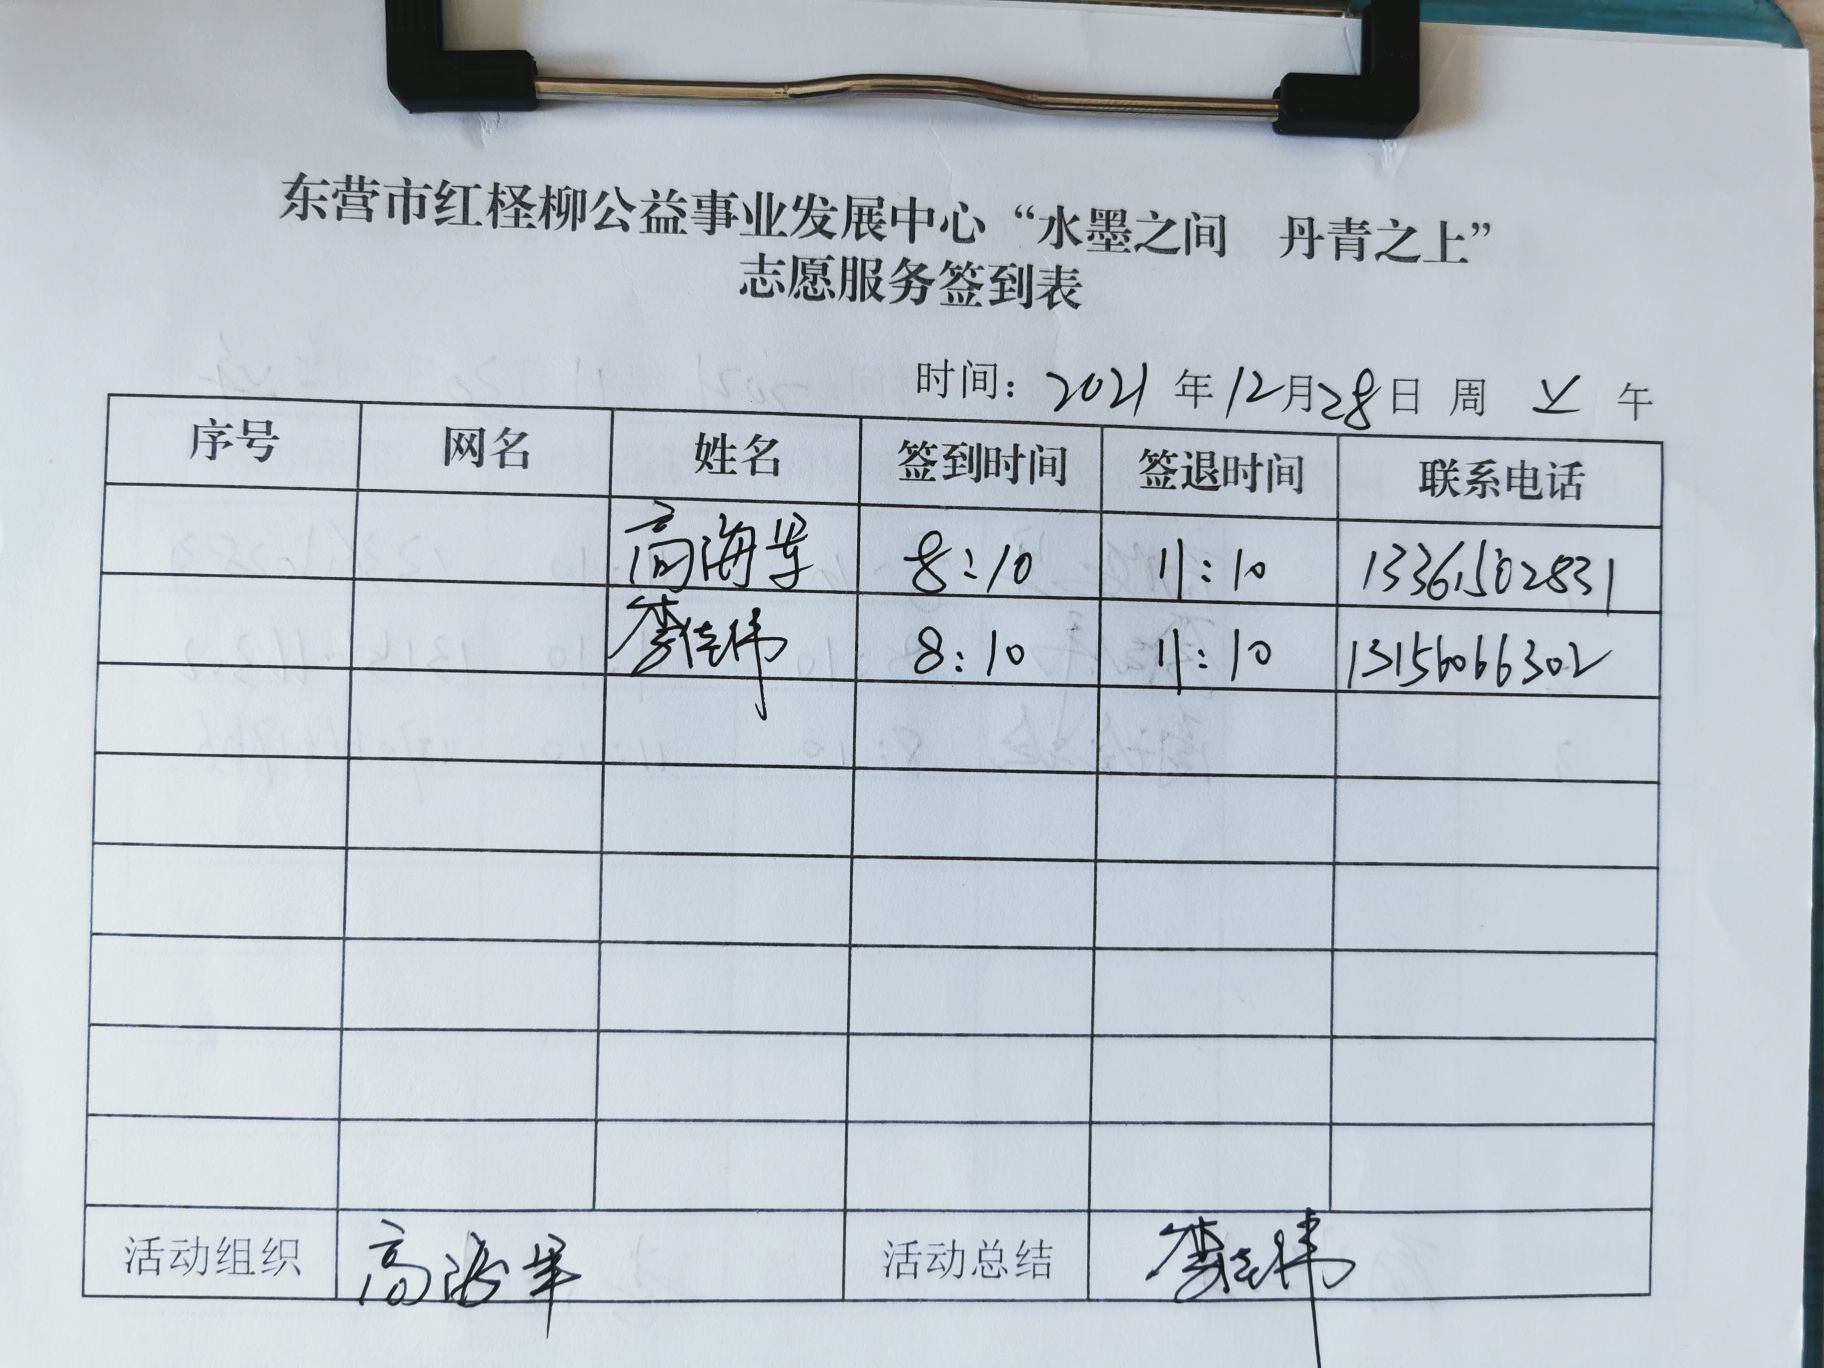 东营市红柽柳公益事业发展中心“水墨之间 丹青之上”
志愿服务签到表
时间：2021年12月28日 周 上 午
序号 网名 姓名 签到时间 签退时间 联系电话
高海军 8:10 11:10 13361502831
李佳伟 8:10 11:10 13156066302
活动组织 高海军 活动总结 李佳伟